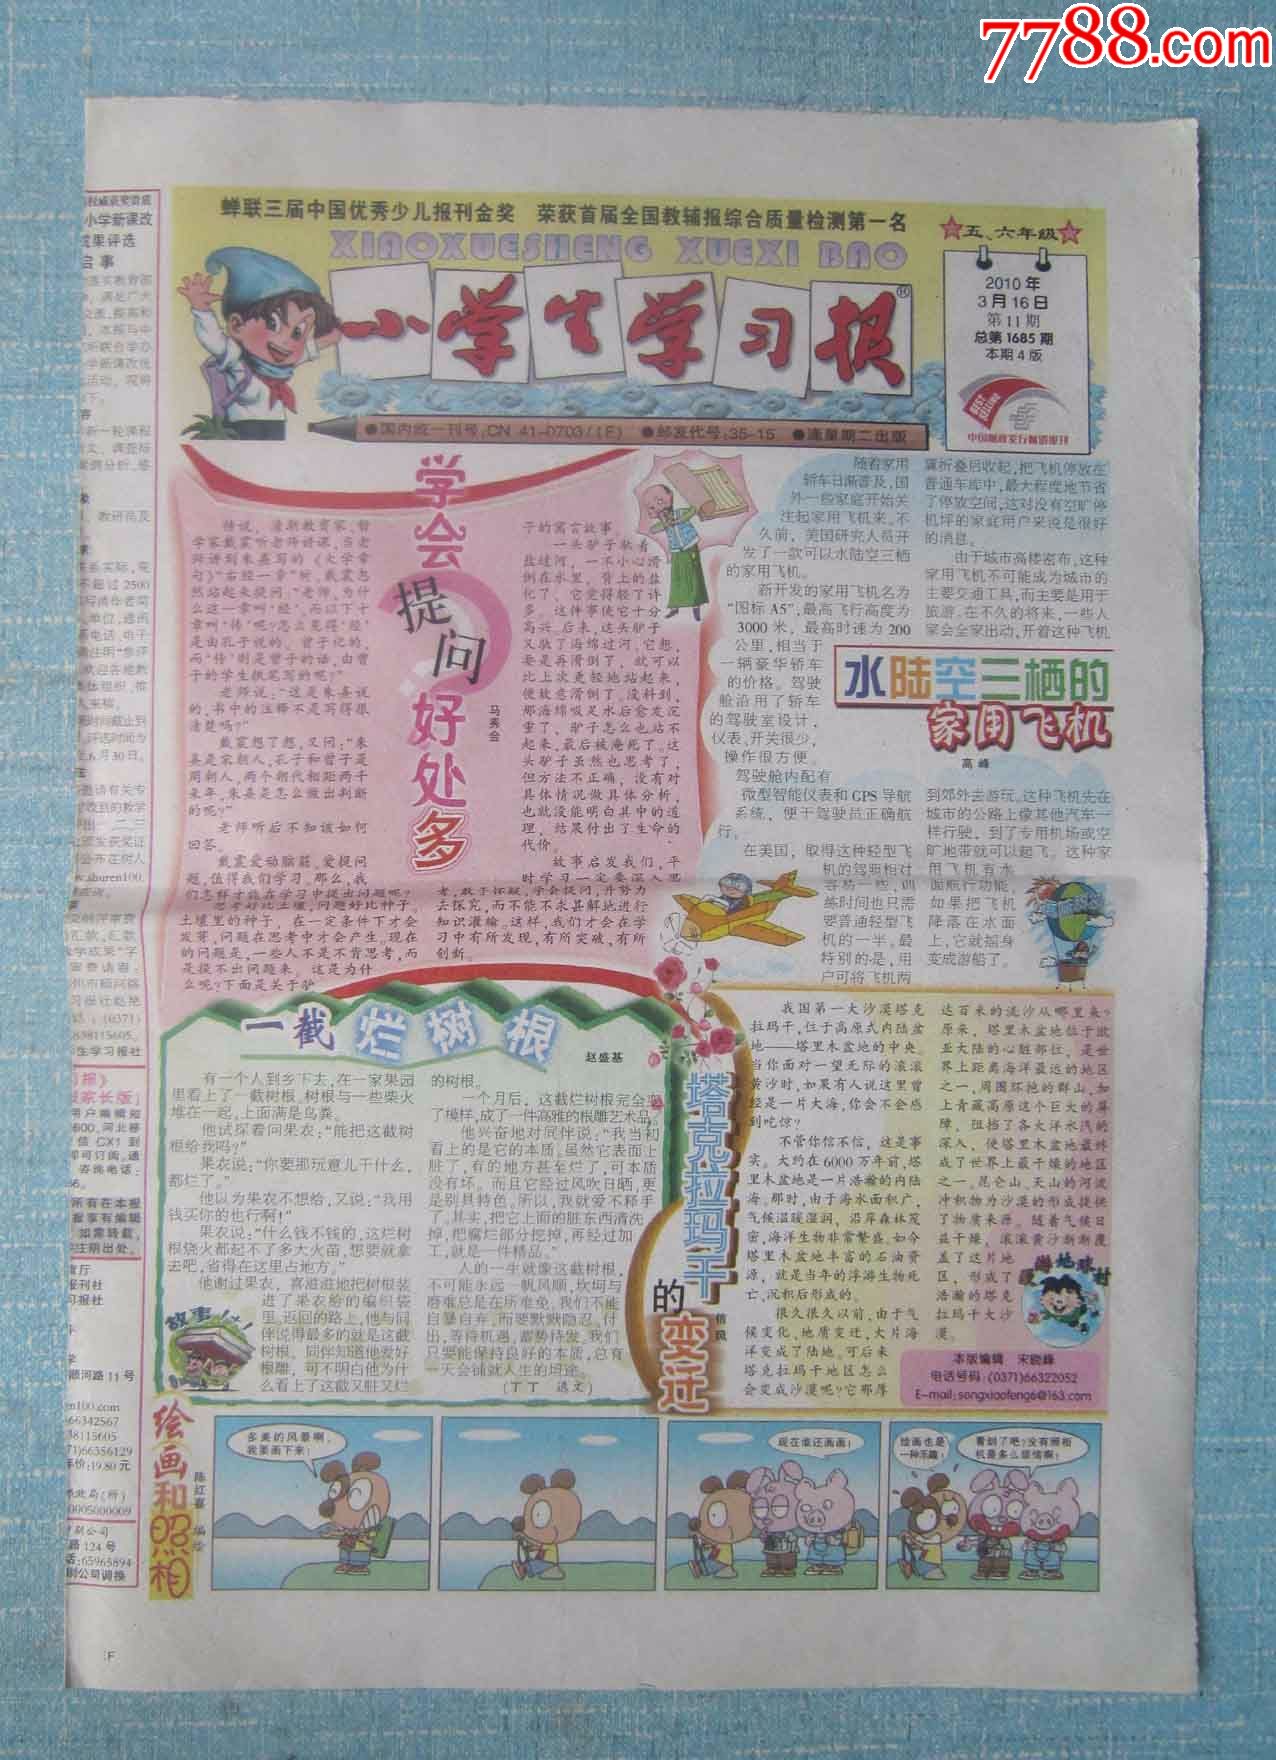 7788.com
蝉联三届中国优秀少儿报刊金奖 荣获首届全国教辅报综合质量检测第一名
XIAOXUESHENG XUEXI BAO
小学生学习报®
五、六年级
2010年
3月16日
第11期
总第1685期
本期4版
BEST SELLING
中国邮政发行畅销报刊
●国内统一刊号:CN 41-0703/(F) ●邮发代号:35-15 ●逢星期二出版
学会提问好处多
马秀会
据说,清朝教育家、哲
学家戴震听老师讲课,当老
师讲到朱熹写的《大学章
句》“右经一章”时,戴震忽
然站起来提问:“老师,为什
么这一章叫‘经’,而以下十
章叫‘传’呢?怎么见得‘经’
是由孔子说的、曾子记的,
而‘传’则是曾子的话,由曾
子的学生执笔写的呢?”
老师说:“这是朱熹说
的,书中的注释不是写得很
清楚吗?”
戴震想了想,又问:“朱
熹是宋朝人,孔子和曾子是
周朝人,两个朝代相距两千
来年,朱熹是怎么做出判断
的呢?”
老师听后不知该如何
回答。
戴震爱动脑筋、爱提问
题,值得我们学习。那么,我
们怎样才能在学习中提出问题呢?
思考好比土壤,问题好比种子。
土壤里的种子,在一定条件下才会
发芽,问题在思考中才会产生。现在
的问题是,一些人不是不肯思考,而
是提不出问题来。这是为什
么呢?下面是关于驴
子的寓言故事。
一头驴子驮着
盐过河,一不小心滑
倒在水里,背上的盐
化了,它觉得轻了许
多。这件事使它十分
高兴。后来,这头驴子
又驮了海绵过河,它想,
要是再滑倒了,就可以
比上次更轻地站起来,
便故意滑倒了。没料到,
那海绵吸足水后愈发沉
重了,驴子怎么也站不
起来,最后被淹死了。这
头驴子虽然也思考了,
但方法不正确,没有对
具体情况做具体分析,
也就没能明白其中的道
理,结果付出了生命的
代价。
故事启发我们,平
时学习一定要深入思
考,敢于怀疑,学会提问,并努力
去探究,而不能不求甚解地进行
知识灌输。这样,我们才会在学
习中有所发现,有所突破,有所
创新。
水陆空三栖的
家用飞机
高峰
随着家用
轿车日渐普及,国
外一些家庭开始关
注起家用飞机来。不
久前,美国研究人员开
发了一款可以水陆空三栖
的家用飞机。
新开发的家用飞机名为
“图标A5”,最高飞行高度为
3000米,最高时速为200
公里,相当于
一辆豪华轿车
的价格。驾驶
舱沿用了轿车
的驾驶室设计,
仪表、开关很少,
操作很方便。
驾驶舱内配有
微型智能仪表和GPS导航
系统,便于驾驶员正确航
行。
在美国,取得这种轻型飞
机的驾驶执照相对
容易一些,训
练时间也只需
要普通轻型飞
机的一半。最
特别的是,用
户可将飞机两
翼折叠后收起,把飞机停放在
普通车库中,最大程度地节省
了停放空间,这对没有空旷停
机坪的家庭用户来说是很好
的消息。
由于城市高楼密布,这种
家用飞机不可能成为城市的
主要交通工具,而主要是用于
旅游。在不久的将来,一些人
家会全家出动,开着这种飞机
到郊外去游玩。这种飞机先在
城市的公路上像其他汽车一
样行驶,到了专用机场或空
旷地带就可以起飞。这种家
用飞机有水
面航行功能,
如果把飞机
降落在水面
上,它就摇身
变成游船了。
一截烂树根
赵盛基
有一个人到乡下去,在一家果园
里看上了一截树根,树根与一些柴火
堆在一起,上面满是鸟粪。
他试探着问果农:“能把这截树
根给我吗?”
果农说:“你要那玩意儿干什么,
都烂了。”
他以为果农不想给,又说:“我用
钱买你的也行啊!”
果农说:“什么钱不钱的,这烂树
根烧火都起不了多大火苗,想要就拿
去吧,省得在这里占地方。”
他谢过果农,喜滋滋地把树根装
进了果农给的编织袋
里。返回的路上,他与同
伴说得最多的就是这截
树根。同伴知道他爱好
根雕,可不明白他为什
么看上了这截又脏又烂
的树根。
一个月后,这截烂树根完全变
了模样,成了一件高雅的根雕艺术品。
他兴奋地对同伴说:“我当初
看上的是它的本质。虽然它表面上
脏了,有的地方甚至烂了,可本质
没有坏。而且它经过风吹日晒,更
是别具特色。所以,我就爱不释手
了。其实,把它上面的脏东西清洗
掉,把腐烂部分挖掉,再经过加
工,就是一件精品。”
人的一生就像这截树根,
不可能永远一帆风顺,坎坷与
磨难总是在所难免。我们不能
自暴自弃,而要默默隐忍、付
出,等待机遇,蓄势待发。我们
只要能保持良好的本质,总有
一天会铺就人生的坦途。
(丁丁 选文)
塔克拉玛干的变迁
信风
我国第一大沙漠塔克
拉玛干,位于高原式内陆盆
地——塔里木盆地的中央。
当你面对一望无际的滚滚
黄沙时,如果有人说这里曾
经是一片大海,你会不会感
到吃惊?
不管你信不信,这是事
实。大约在6000万年前,塔
里木盆地是一片浩瀚的内陆
海。那时,由于海水面积广,
气候温暖湿润,沿岸森林茂
密,海洋生物非常繁盛。如今
塔里木盆地丰富的石油资
源,就是当年的浮游生物死
亡、沉积后形成的。
很久很久以前,由于气
候变化、地质变迁,大片海
洋变成了陆地。可后来
塔克拉玛干地区怎么
会变成沙漠呢?它那厚
达百米的流沙从哪里来?
原来,塔里木盆地位于欧
亚大陆的心脏部位,是世
界上距离海洋最远的地区
之一。周围环抱的群山,加
上青藏高原这个巨大的屏
障,阻挡了各大洋水汽的
深入,使塔里木盆地最终
成了世界上最干燥的地区
之一。昆仑山、天山的河流
冲积物为沙漠的形成提供
了物质来源。随着气候日
益干燥,滚滚黄沙渐渐覆
盖了这片地
区,形成了
浩瀚的塔克
拉玛干大沙
漠。
漫游地球村
本版编辑 宋晓峰
电话号码:(0371)66322052
E-mail:songxiaofeng6@163.com
绘画和照相
陈红喜 编绘
多美的风景啊,
我要画下来!
现在谁还画画!
绘画也是
一种乐趣!
看到了吧?没有照相
机是多么烦恼啊!
小学新课改
成果评选
启事